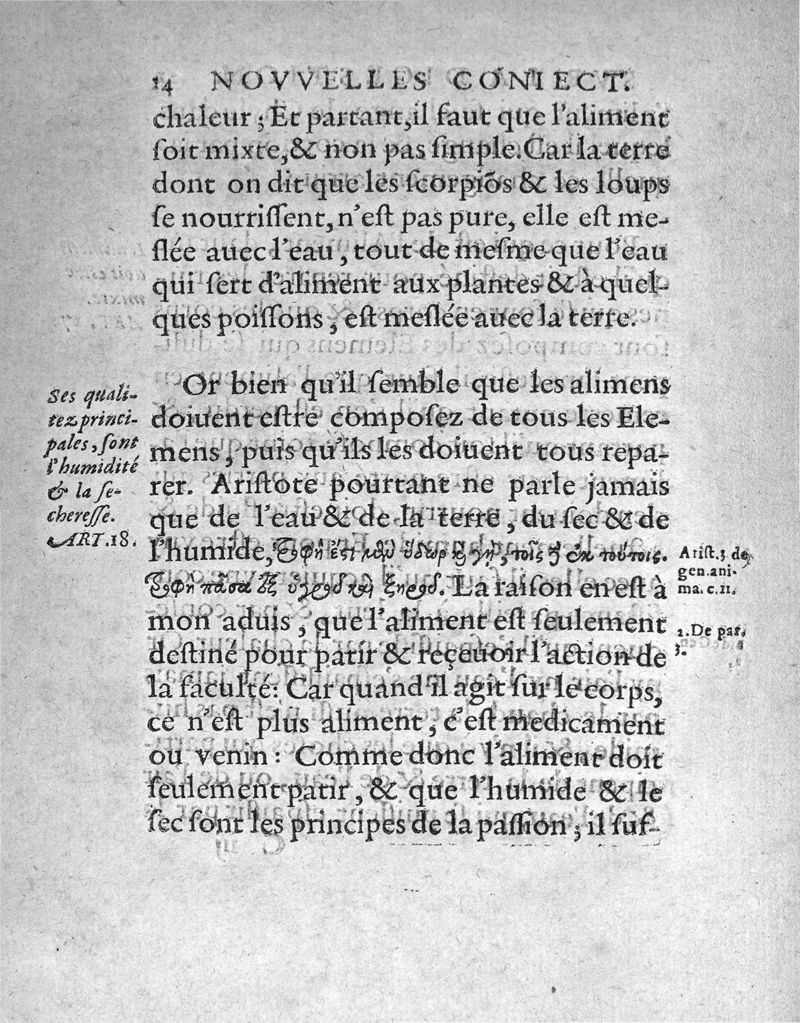 14 NOVVELLES CONIECT.
chaleur ; Et partant, il faut que l'aliment
ſoit mixte, & non pas ſimple. Car la terre
dont on dit que les ſcorpiõs & les loups
ſe nourriſſent, n'eſt pas pure, elle eſt me-
ſlée auec l'eau, tout de meſme que l'eau
qui ſert d'aliment aux plantes & à quel-
ques poiſſons, eſt meſlée auec la terre.
Ses quali-
tez princi-
pales, ſont
l'humidité
& la ſe-
chereſſe.
ART. 18.
Or bien qu'il ſemble que les alimens
doiuent eſtre compoſez de tous les Ele-
mens, puis qu'ils les doiuent tous repa-
rer. Ariſtote pourtant ne parle jamais
que de l'eau & de la terre, du ſec & de
l'humide, τροφὴ ἐστὶ μὲν ὕδωρ καὶ γῆ, τοῖς δὲ ἐκ τούτοις.
τροφὴ πᾶσα ἐξ ὑγροῦ καὶ ξηροῦ. La raiſon en eſt à
mon aduis, que l'aliment eſt ſeulement
deſtiné pour patir & reçeuoir l'action de
la faculté: Car quand il agit ſur le corps,
ce n'eſt plus aliment, c'eſt medicament
ou venin: Comme donc l'aliment doit
ſeulement patir, & que l'humide & le
ſec ſont les principes de la paſſion; il ſuf-
Ariſt. 3 de
gen. ani-
ma. c. 11.
2. De par.
3.